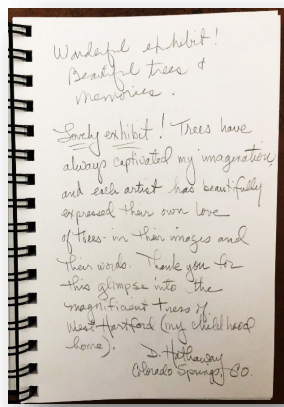 Wonderful exhibit!
Beautiful trees &
memories.
Lovely exhibit! Trees have
always captivated my imagination,
and each artist has beautifully
expressed their own love
of trees - in their images and
their words. Thank you for
this glimpse into the
magnificent trees of
West Hartford (my childhood
home).
D. Hathaway
Colorado Springs, CO.